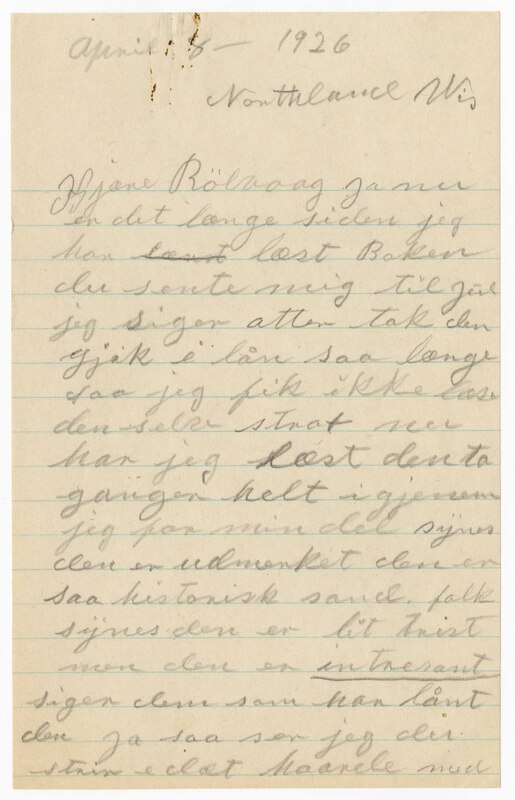 April 8 - 1926
Northland Wis
Hjære Rölvaag ja nu
er det længe siden jeg
har læst Boken
du sente mig til Jul
jeg siger atter tak den
gjik i lån saa længe
saa jeg fik ikke læse
den selv strax nu
har jeg læst den to
ganger helt igjenem
jeg for min del synes
den er udmerket den er
saa historisk sand. folk
synes den er lit trist
men den er intresant
siger dem som har lånt
den ja saa ser jeg du
haarde med